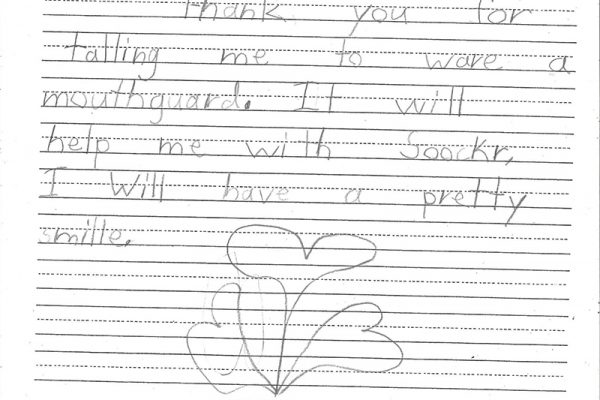 Thank you for
talling me to ware a
mouthguard. It will
help me with Soockr,
I will have a pretty
smille.